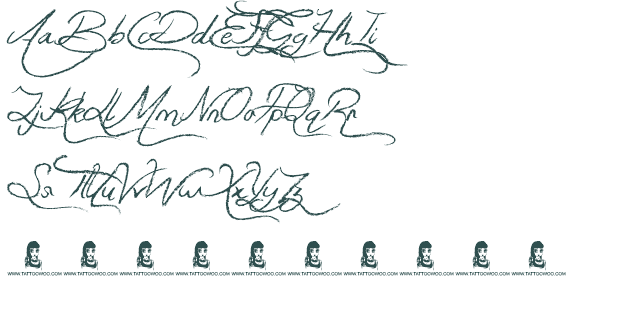 AaBbCcDdEeFfGgHhIi
JjKkLlMmNnOoPpQqRr
SsTtUuVvWwXxYyZz
WWW.TATTOOWOO.COM WWW.TATTOOWOO.COM WWW.TATTOOWOO.COM WWW.TATTOOWOO.COM WWW.TATTOOWOO.COM WWW.TATTOOWOO.COM WWW.TATTOOWOO.COM WWW.TATTOOWOO.COM WWW.TATTOOWOO.COM WWW.TATTOOWOO.COM